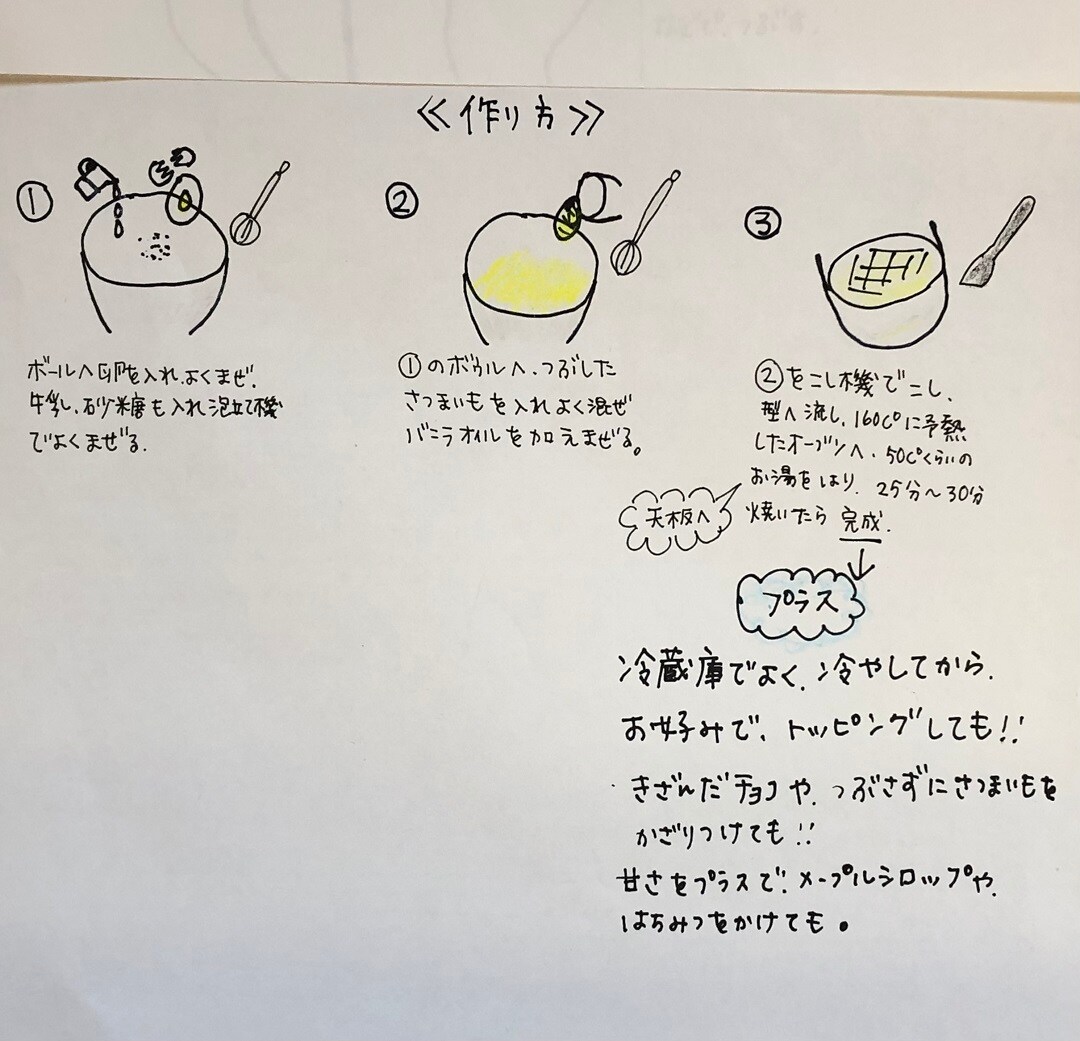 ≪作り方≫
①
ボールへ卵を入れ、よくまぜ、
牛乳、砂糖も入れ泡立て機
でよくまぜる。
②
①のボウルへ、つぶした
さつまいもを入れよく混ぜ
バニラオイルを加えまぜる。
③
②をこし機でこし、
型へ流し、160C°に予熱
したオーブンへ、50C°くらいの
お湯をはり、25分〜30分
焼いたら 完成。
天板へ
プラス
冷蔵庫でよく、冷やしてから、
お好みで、トッピングしても!!
・きざんだチョコや、つぶさずにさつまいもを
かざりつけても!!
甘さをプラスで、メープルシロップや、
はちみつをかけても。